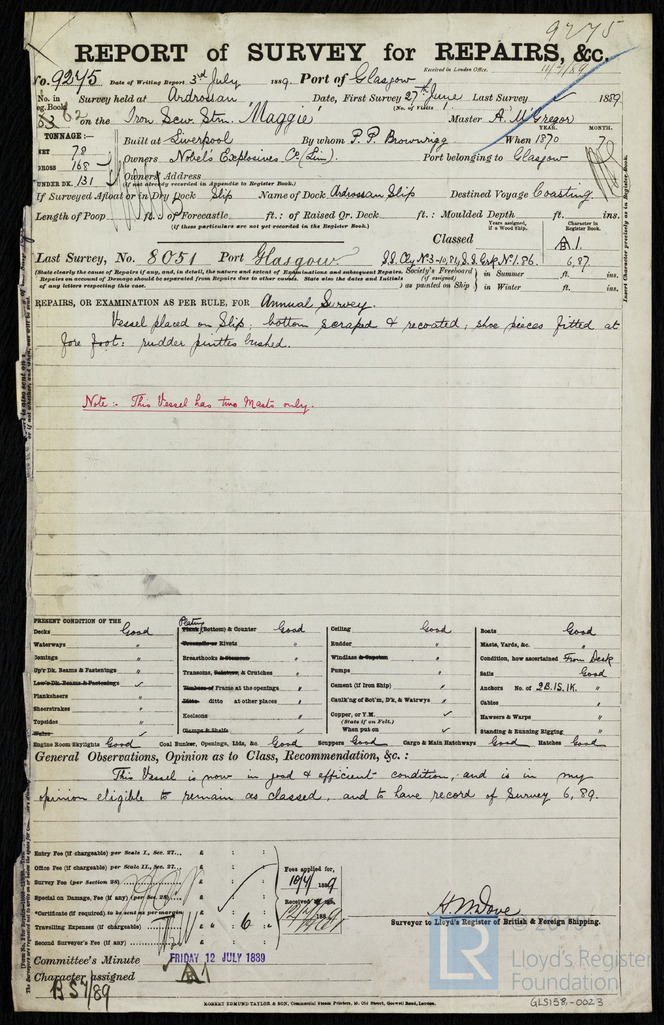 9275
REPORT of SURVEY for REPAIRS, &c.
Received in London Office.
No. 9275 Date of Writing Report 3rd July 1889. Port of Glasgow
No. in Survey held at Ardrossan Date, First Survey 27th June Last Survey 1889.
Reg. Book (No. of Visits 1.
62 on the Iron Scw. Stm. "Maggie" Master A. McGregor
TONNAGE:— YEAR. MONTH.
Built at Liverpool By whom P. P. Brownrigg When 1870
NET 78
GROSS 168 Owners Nobel's Explosives Co (Lim). Port belonging to Glasgow
UNDER DK. 131 Owners' Address
(if not already recorded in Appendix to Register Book.)
If Surveyed Afloat or in Dry Dock Slip Name of Dock Ardrossan Slip Destined Voyage Coasting.
Length of Poop ft. : of Forecastle ft. : of Raised Qr. Deck ft. : Moulded Depth ft. ins.
(if these particulars are not yet recorded in the Register Book.)
Years assigned, if a Wood Ship. Character in Register Book.
Classed A1
Last Survey, No. 8051 Port Glasgow. 6,87
(State clearly the cause of Repairs if any, and, in detail, the nature and extent of Examinations and subsequent Repairs.
Repairs on account of Damage should be separated from Repairs due to other causes. State also the dates and Initials
of any letters respecting this case.
Society's Freeboard (if assigned) as painted on Ship
in Summer ft. ins.
in Winter ft. ins.
Insert Character precisely as in Register Book.
REPAIRS, OR EXAMINATION AS PER RULE, FOR Annual Survey.
Vessel placed on Slip; bottom scraped & recoated; shoe pieces fitted at
fore foot: rudder pintles bushed.
Note:- This Vessel has two Masts only.
PRESENT CONDITION OF THE
Decks Good
Waterways "
Comings "
Up'r Dk. Beams & Fastenings "
Low'r Dk. Beams & Fastenings
Planksheers "
Sheerstrakes "
Topsides "
Wales
Plating
Plank (Bottom) & Counter Good
Treenails or Rivets "
Breasthooks & Stemson "
Transoms, Pointers, & Crutches "
Timbers of Frame at the openings "
Ditto ditto at other places "
Keelsons "
Clamps & Shelfs
Ceiling Good
Rudder "
Windlass & Capstan "
Pumps "
Cement (if Iron Ship) "
Caulk'ng of Bot'm, D'k, & Watrwys "
Copper, or Y.M.
(State if on Felt.)
When put on
Boats Good
Masts, Yards, &c. "
Condition, how ascertained From Deck
Sails Good
Anchors No. of 2B.1S.1K. "
Cables "
Hawsers & Warps "
Standing & Running Rigging "
Engine Room Skylights Good Coal Bunker, Openings, Lids, &c. Good Scuppers Good Cargo & Main Hatchways Good Hatches Good
General Observations, Opinion as to Class, Recommendation, &c. :
This Vessel is now in good & efficient condition, and is in my
opinion eligible to remain as classed, and to have record of Survey 6, 89.
Entry Fee (if chargeable) per Scale I., Sec. 27... £ : :
Office Fee (if chargeable) per Scale II., Sec. 27... £ : :
Survey Fee (per Section 28) £ : :
Special on Damage, Fee (if any) (per Sec. 28) £ : :
*Certificate (if required) to be sent as per margin
Travelling Expenses (if chargeable) £ " : 6 :
Second Surveyor's Fee (if any) £ : :
Fees applied for,
10/7/1889
Received by me,
1889
H. M. Dove
Surveyor to Lloyd's Register of British & Foreign Shipping.
Committee's Minute FRIDAY 12 JULY 1889
Character assigned A1
BS 7/89
LR
Lloyd's Register
Foundation
GLS158-0023
ROBERT EDMUND TAYLOR & SON, Commercial Steam Printers, 19, Old Street, Goswell Road, London.